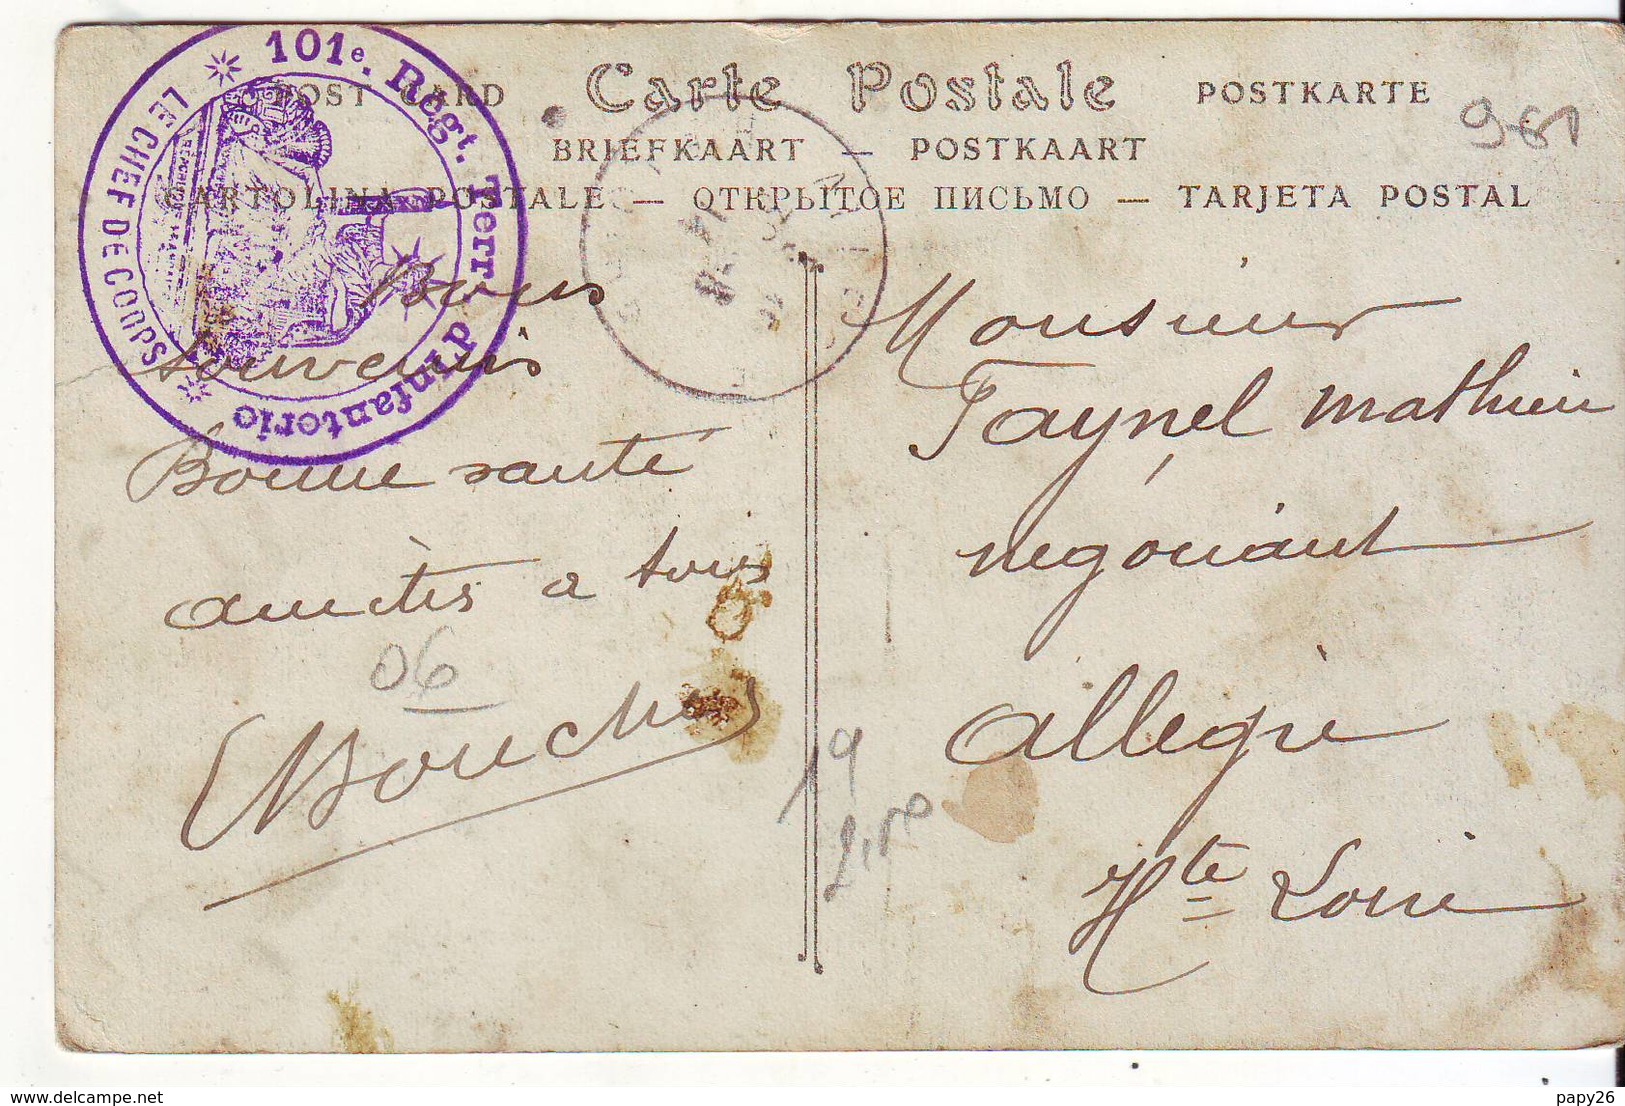 Carte Postale
POST CARD
POSTKARTE
BRIEFKAART — POSTKAART
CARTOLINA POSTALE — ОТКРЫТОЕ ПИСЬМО — TARJETA POSTAL
101e. Régt. Terr. d'Infanterie
LE CHEF DE CORPS
Bons
souvenirs
Bonne santé
amitiés a tous
06
Monsieur
Faynel mathieu
négociant
allegre
Hte Loire
19
961
www.delcampe.net
papy26